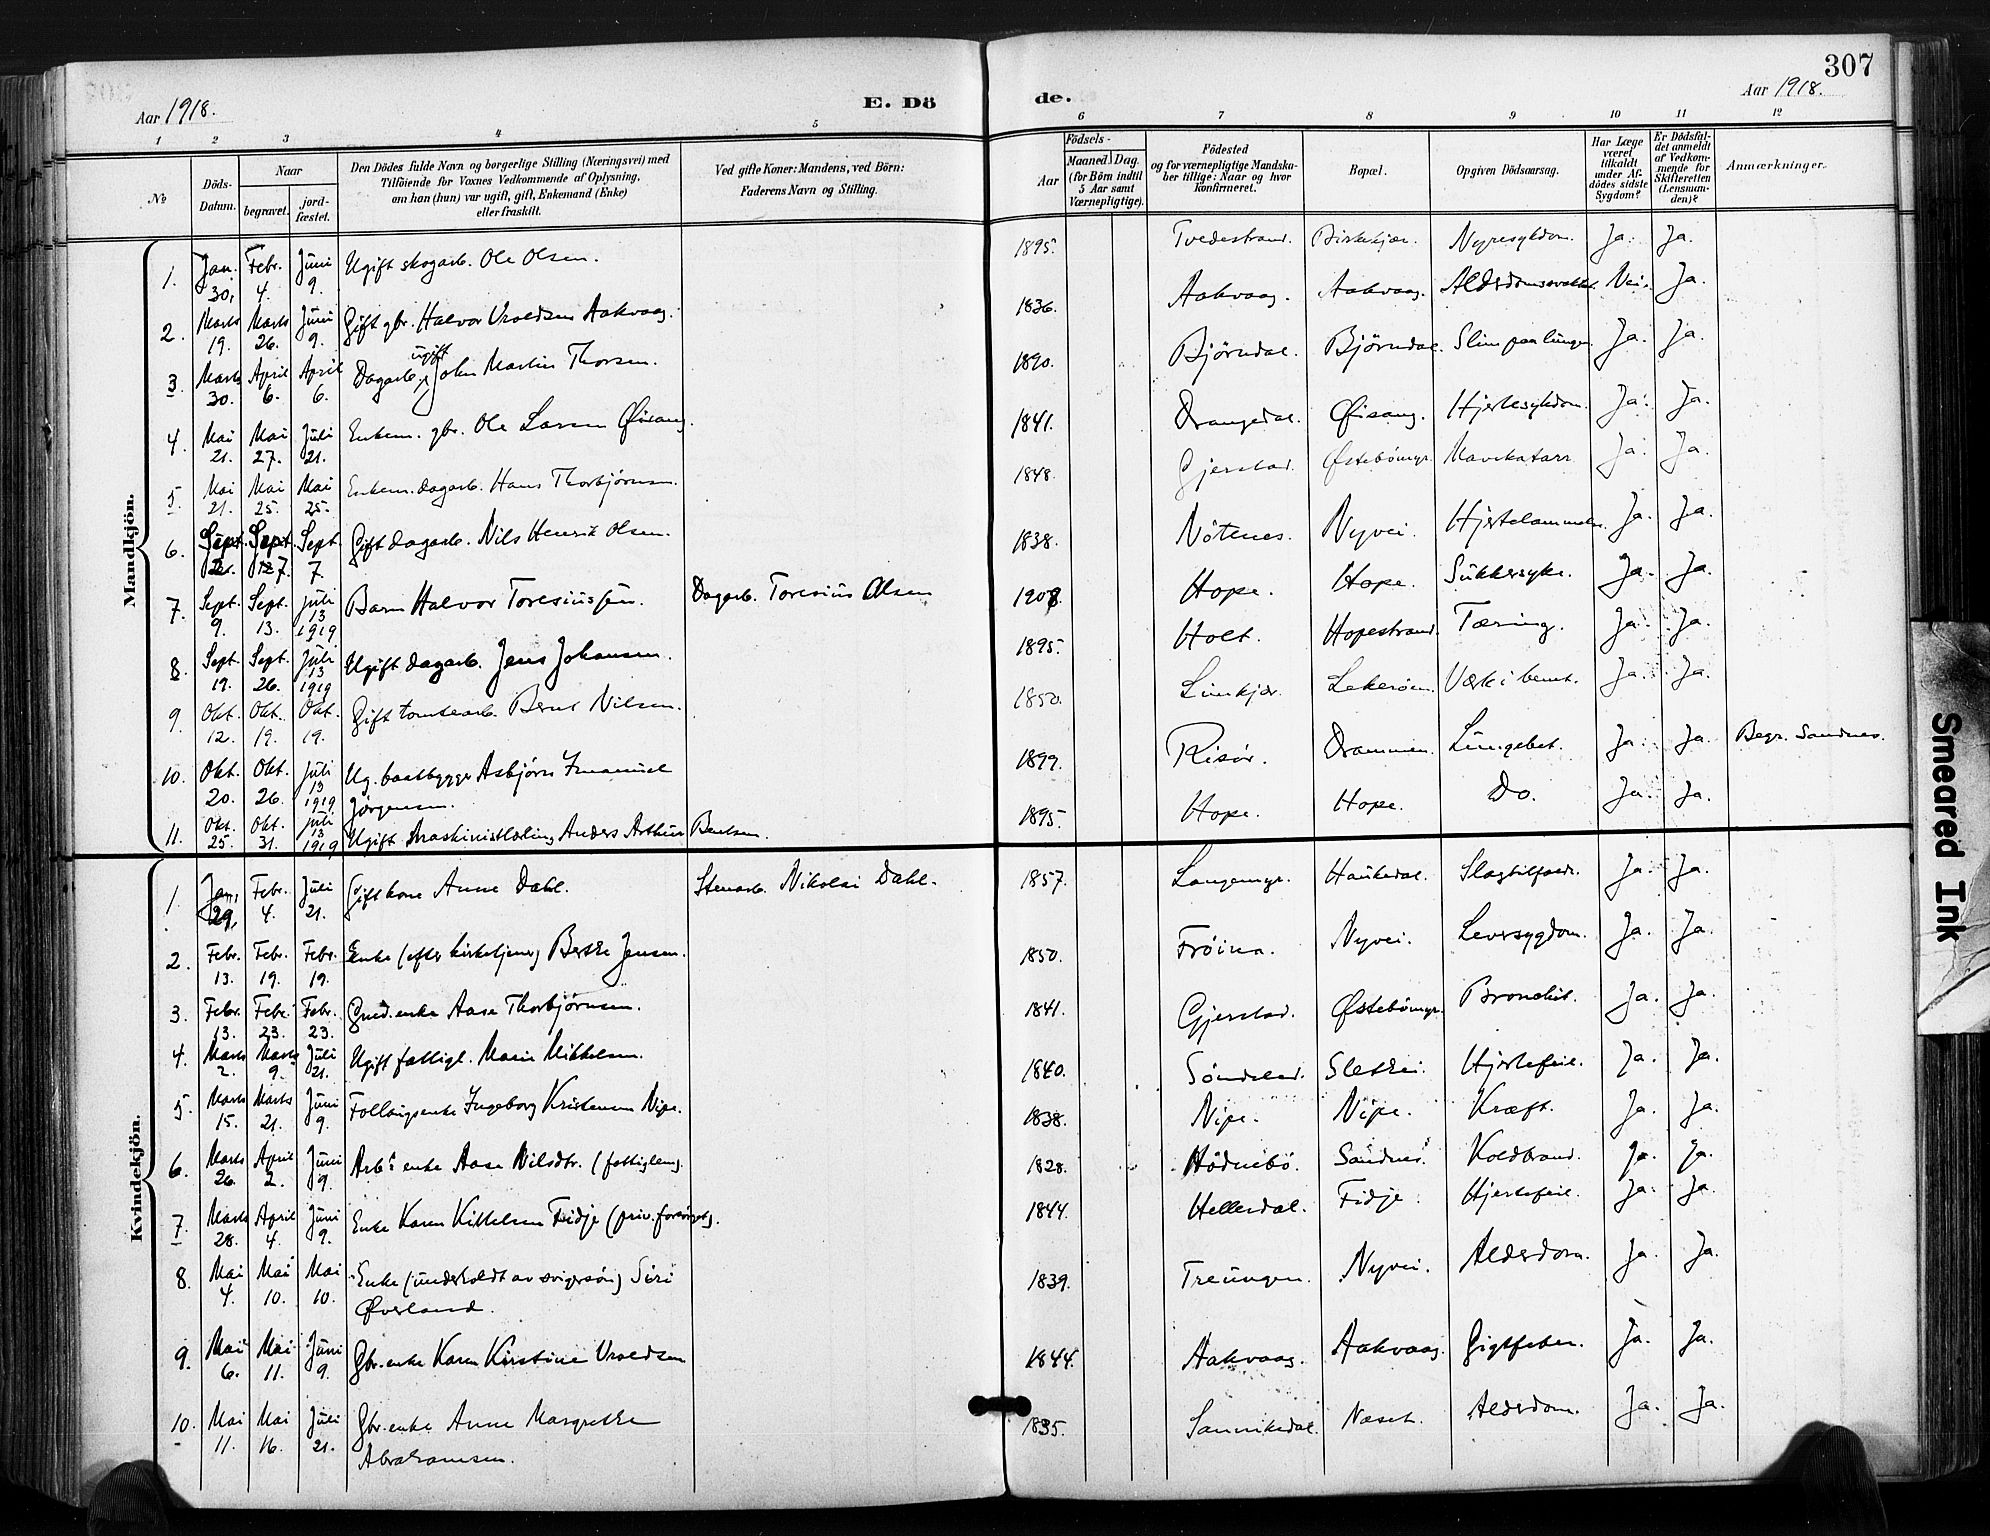 307
Aar 1918. E. Dö de. Aar 1918.
1 2 3 4 5 6 7 8 9 10 11 12
№ Döds-Datum. Naar begravet. jord-fæstet. Den Dödes fulde Navn og borgerlige Stilling (Næringsvei) med Tilföiende for Voxnes Vedkommende af Oplysning, om han (hun) var ugift, gift, Enkemand (Enke) eller fraskilt. Ved gifte Koner: Mandens, ved Börn: Faderens Navn og Stilling. Födsels- Aar Maaned. Dag. (for Börn indtil 5 Aar samt Værnepligtige). Födested og for værnepligtige Mandskaber tillige: Naar og hvor Konfirmeret. Bopæl. Opgiven Dödsaarsag. Har Læge været tilkaldt under Afdödes sidste Sygdom? Er Dödsfaldet anmeldt af Vedkommende for Skifteretten (Lensmanden)? Anmærkninger.
Mandkjön.
1. Jan. 30. Febr. 4. Juni 9. Ugift skogarb. Ole Olsen. 1895. Tvedestrand. Birkekjær. Nyresykdom. Ja. Ja.
2. Marts 19. Marts 26. Juni 9. Gift gbr. Halvor Vroldsen Aakvaag. 1836. Aakvaag. Aakvaag. Alderdomssvakhet. Nei. Ja.
3. Marts 30. April 6. April 6. Dagarb. ugift John Martin Thorsen. 1890. Björndal. Björndal. Slim paa lungen. Ja. Ja.
4. Mai 21. Mai 27. Juli 21. Enkem. gbr. Ole Larsen Øisang. 1841. Drangedal. Øisang. Hjertesykdom. Ja. Ja.
5. Mai 21. Mai 25. Mai 25. Enkem. dagarb. Hans Thorbjörnsen. 1848. Gjerstad. Østebömyr. Mavekatarr Ja. Ja.
6. Sept. 2. Sept. 7. Sept. 7. Gift dagarb. Nils Henrik Olsen. 1838. Nötenes. Nyvei. Hjertelammelse. Ja. Ja.
7. Sept. 9. Sept. 13. Juli 13 1919 Barn Halvor Toresiussen. Dagarb. Toresius Olsen 1908. Hope. Hope. Sukkersyke. Ja. Ja.
8. Sept. 19. Sept. 26. Juli 13 1919 Ugift dagarb. Jens Johansen. 1895. Holt. Hopestrand. Tæring. Ja. Ja.
9 Okt. 12. Okt. 19. Okt. 19. Gift tomtearb. Bernt Nilsen. 1850. Limkjær. Lekeröen. Værk i benet. Ja. Ja.
10. Okt. 20. Okt. 26. Juli 13 1919 Ug. baatbygger Asbjörn Imanuel Jörgensen. 1899. Risör. Drammen. Lungebet. Ja. Ja. Begr. Sandnes.
11. Okt. 25. Okt. 31. Juli 13 1919 Ugift Maskinistlærling Anders Arthur Bentsen. 1895. Hope. Hope. Do. Ja. Ja.
Kvindekjön.
1. Jan. 29. Febr. 4. Juli 21. Gift kone Anne Dahl. Stenarb. Nikolai Dahl. 1857. Langemyr. Haukedal. Slagtilfælde. Ja. Ja.
2. Febr. 13. Febr. 19. Febr. 19. Enke (efter kirketjener) Berthe Jensen. 1850. Fröina. Nyvei. Leversygdom. Ja. Ja.
3. Febr. 13. Febr. 23. Febr. 23. Gmd. enke Aase Thorbjörnsen. 1841. Gjerstad. Østebömyr. Bronchit. Ja. Ja.
4. Marts 2. Marts 9. Juli 21. Ugift fattigl. Maren Mikkelsen. 1840. Söndeled. Slethei. Hjertefeil. Ja. Ja.
5. Marts 15. Marts 21. Juni 9. Follaugsenke Ingeborg Kristensen Nipe. 1838. Nipe. Nipe. Kræft. Ja. Ja.
6. Marts 26. April 2. Juni 9. Arbs enke Aase Nilsdtr. (fattiglem). 1828. Hödnebö. Sandnes. Koldbrand. Ja. Ja.
7. Marts 28. April 4. Juni 9. Enke Karen Kittelsen Fidje (priv. forsörget). 1844. Hellerdal. Fidje. Hjertefeil. Ja. Ja.
8. Mai 4. Mai 10. Mai 10. Enke (underholdt av svigersön) Siri Øverland. 1839. Treungen. Nyvei. Alderdom. Ja. Ja.
9. Mai 6. Mai 11. Juni 9. Gbr. enke Karen Kirstine Vroldsen 1844. Aakvaag. Aakvaag. Gigtfeber. Ja. Ja.
10. Mai 11. Mai 16. Juli 21. Gbr. enke Anne Margrethe Abrahamsen. 1835. Sannikedal. Næset. Alderdom. Ja. Ja.
Smeared Ink